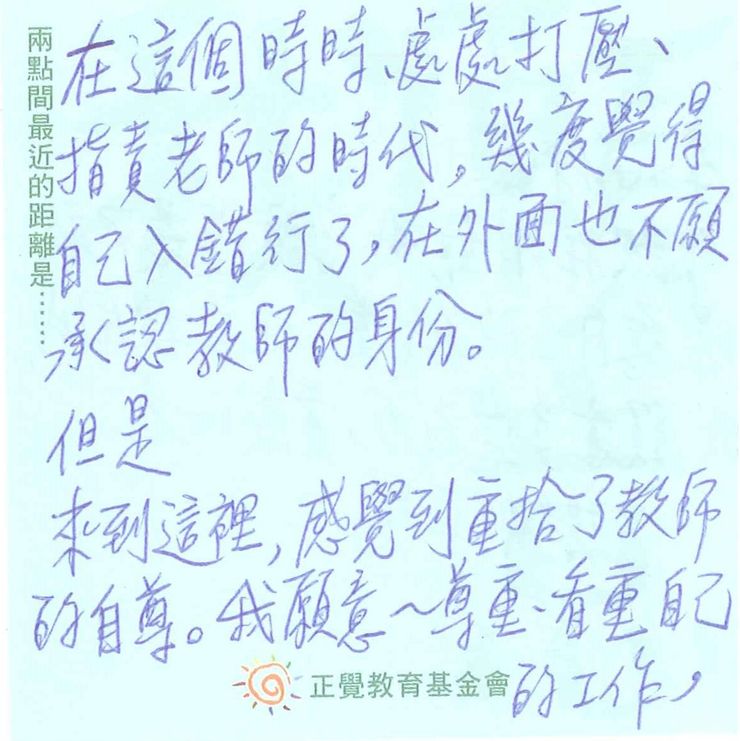 兩點間最近的距離是……
在這個時時、處處打壓、
指責老師的時代，幾度覺得
自己入錯行了，在外面也不願
承認教師的身份。
但是
來到這裡，感覺到重拾了教師
的自尊。我願意～尊重、看重自己
的工作，
正覺教育基金會